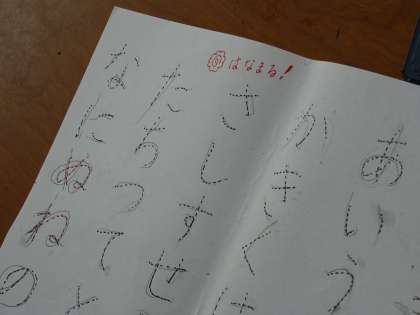 はなまる!
あいう
かきくけ
さしすせ
たちつて
なにぬねの